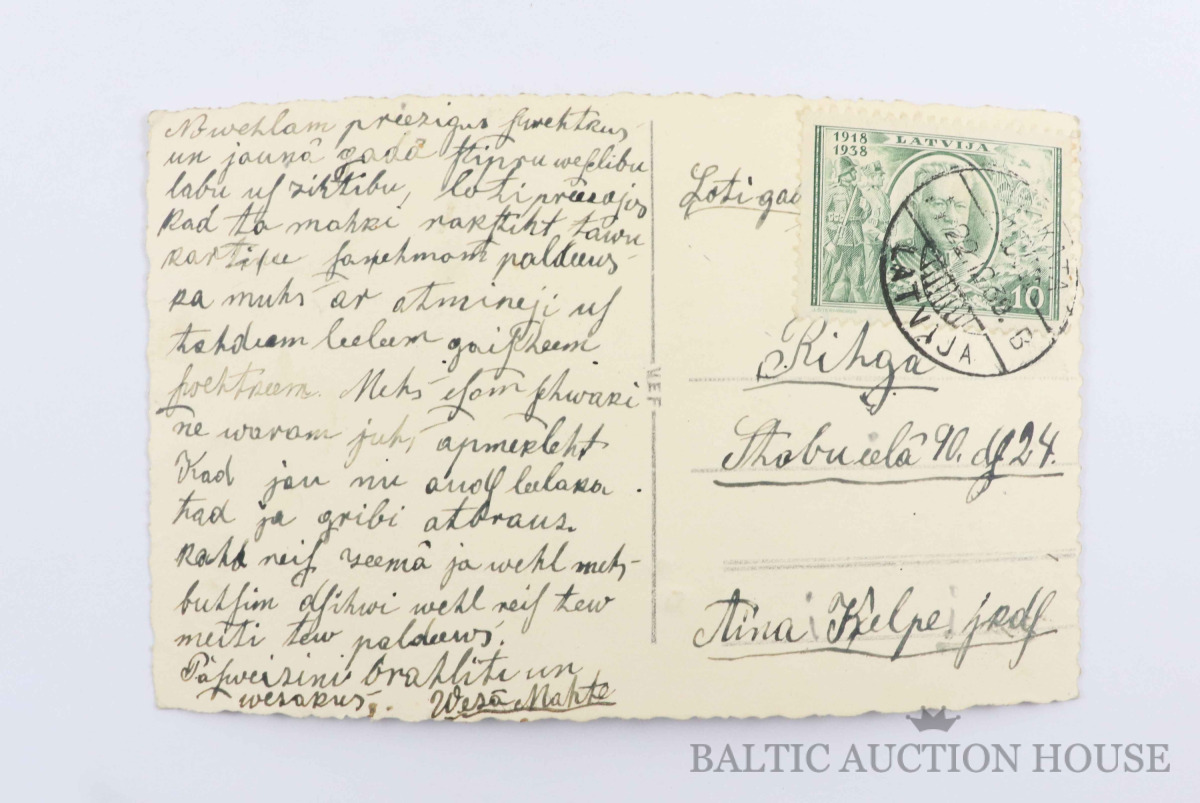 Nowehlam preezigus swehtkus
un jaunâ gadâ stipru weslibu
labu us zihtibu, loti preezajos
kad to mahki rakstiht tawu
kartiņu saņehmam paldeews
ka muhs ar atmineji us
tahdeem leeleem gaischeem
swehtkeem. Mehs esam schwaki
ne waram juhs apmekleht
Kad jau nu augs leelaka
tad ja gribi atbrauz.
kahd reis zeemâ ja wehl mehs
buhsim dsihwi wehl reis tew
meiti tew paldeews.
Pasweizini brahliti un
wezakus. Wezâ Mahte
VEF
Loti
1918
1938
LATVIJA
10
LATVIJA
B
Rihgâ
Stabu eelâ 90. dz 24.
Aina Kelpe, jkdz
BALTIC AUCTION HOUSE